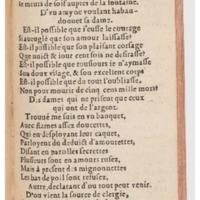 Ie meurs de soif aupres de la fontaine.
D'vn amy ne voulant haban-
donner sa dame.
Est-il possible que i'eusse le courage
Si aueuglé que son amour laissasse?
Est-il possible que son plaisant corsage
Que nuict & iour cent fois ne desirasse?
Est-il possible que tousiours ie n'aymasse
Son doux visage, & son excellent corps
Est-il possible que de tout l'oubliasse.
Non pour mourir de cinq cens mille morts
Des dames qui ne prisent que ceux
qui ont de l'argent.
Trouué me suis en vn banquet,
Auec dames assez doucettes,
Qui en desployant leur caquet,
Parloyent de deduit d'amourettes,
Disant en parolles secrettes
Plusieurs sont en amours rusez,
Mais à present ds mignonnettes
Les bas de poil sont refusez,
Autre, declarant d'ou tout peut venir.
D'ou vient la source de clergie,